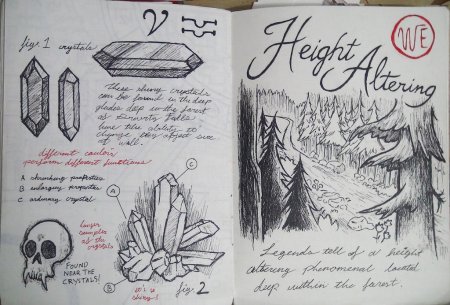 fig. 1 crystals
these shiny crystals
can be found in the deep
glades deep in the forest
of Gravity Falls
have the ability to
change they object size
at will.
different colors
perform different functions
A shrinking properties
B enlarging properties
C ordinary crystal
A
C
B
larger
samples
of the
crystals
FOUND
NEAR THE
CRYSTALS!
it's so
shiny!
fig: 2
WE
Height
Altering
Legends tell of a height
altering phenomenal located
deep within the forest.